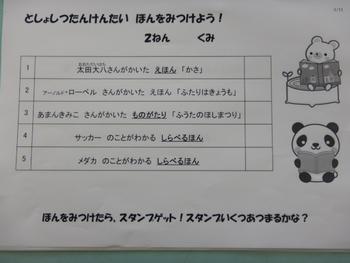 としょしつたんけんたい ほんをみつけよう！
2ねん くみ
1 太田大八さんがかいた えほん 「かさ」
2 アーノルド・ローベル さんがかいた えほん 「ふたりはきょうも」
3 あまんきみこ さんがかいた ものがたり 「ふうたのほしまつり」
4 サッカー のことがわかる しらべるほん
5 メダカ のことがわかる しらべるほん
ほんをみつけたら、スタンプゲット！スタンプいくつあつまるかな？